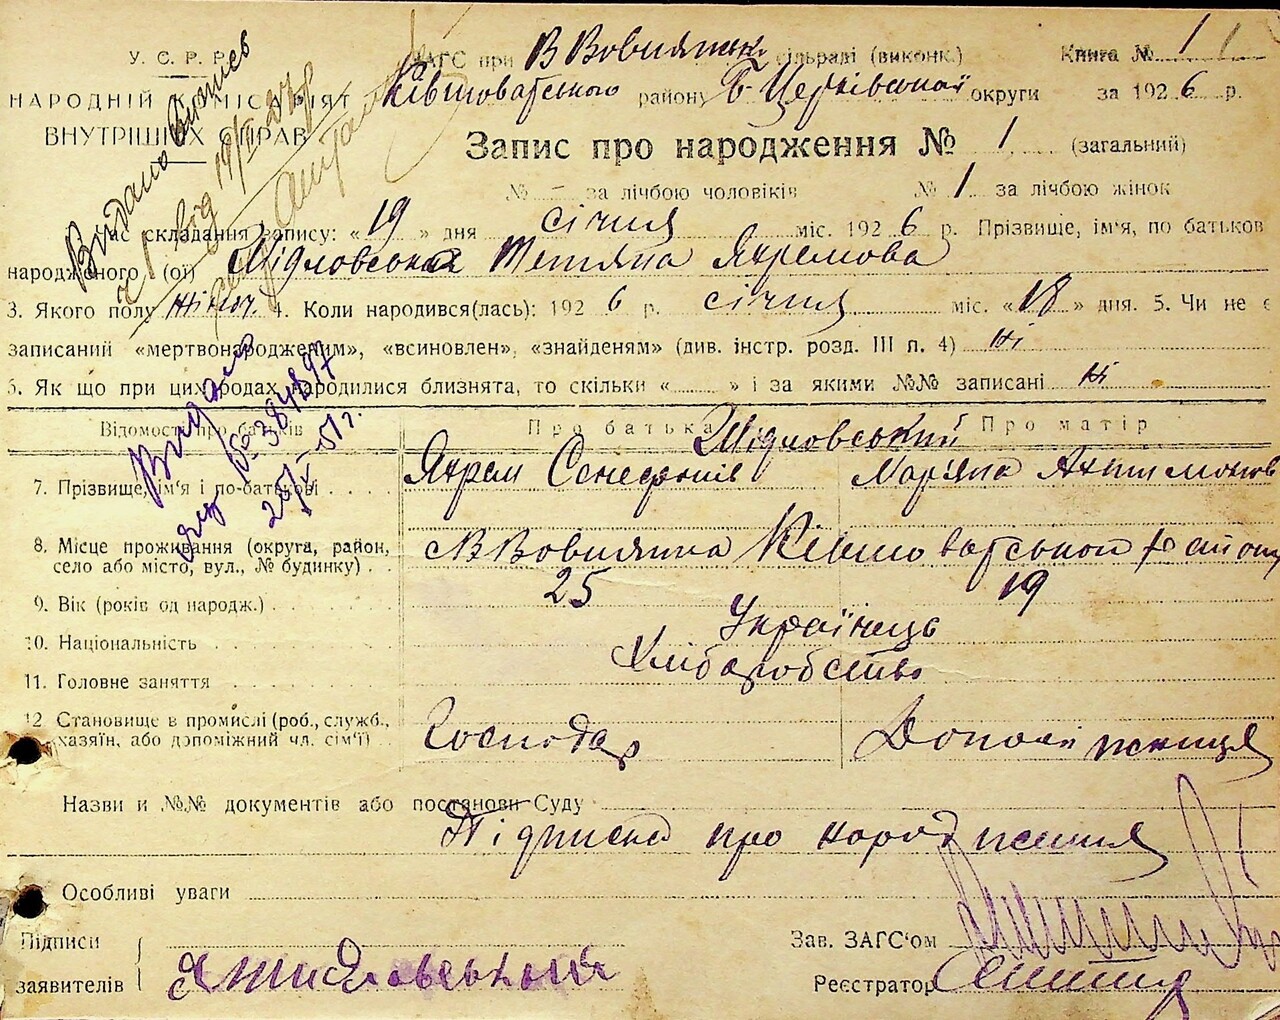 У. С. Р. Р.
НАРОДНІЙ КОМІСАРІЯТ
ВНУТРІШНІХ СПРАВ
ЗАГС при В Вовнянськ. сільраді (виконк.) Книга № 1
Ківшоватського району Б Церківської округи за 1926 р.
Запис про народження № 1 (загальний)
№ – за лічбою чоловіків № 1 за лічбою жінок
Час складання запису: «19» дня січня міс. 1926 р. Прізвище, ім'я, по батьков
народженого (ої) Шідловська Тетяна Яхремова
3. Якого полу жіноч. 4. Коли народився(лась): 1926 р. січня міс. «18» дня. 5. Чи не є
записаний «мертвонародженим», «всиновлен», «знайденям» (див. інстр. розд. III п. 4) Ні
6. Як що при цих родах народилися близнята, то скільки « » і за якими №№ записані Ні
Видано Витяг
з
Видано
№ 384897
25/IX–51 г.
Відомості про батьків Про батька Про матір
Шідловський
7. Прізвище, ім'я і по-батькові Яхрем Мар'яна
8. Місце проживання (округа, район,
село або місто, вул., № будинку) В Вовнянка Ківшоватського району
9. Вік (років од народж.) 25 19
10. Національність Українець
11. Головне заняття Хліборобство
12 Становище в промислі (роб., служб.,
хазяїн, або допоміжний чл. сім'ї) Господар
Назви и №№ документів або постанови Суду
Підписка про народження
Особливі уваги
Підписи
заявителів Я Шидловський
Зав. ЗАГС'ом
Реєстратор